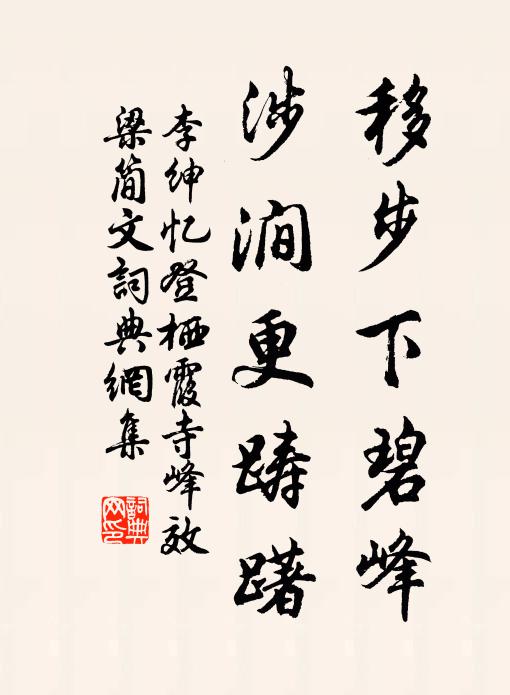 移步下碧峰
涉澗更踌躇
李绅忆登栖霞寺峰效
梁简文詞典網集
詞典网印